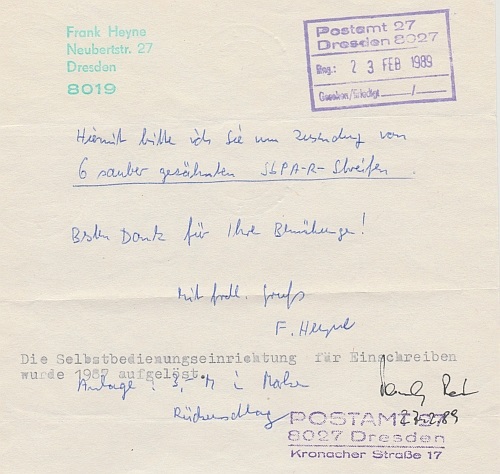 Frank Heyne
Neubertstr. 27
Dresden
8019
Postamt 27
Dresden 8027
Eing.: 23 FEB 1989
Gesehen/Erledigt ____/____
Hiermit bitte ich Sie um Zusendung von
6 sauber gezähnten SbPA-R-Streifen.
Besten Dank für Ihre Bemühungen!
Mit frdl. Gruß
F. Heyne
Die Selbstbedienungseinrichtung für Einschreiben
wurde 1987 aufgelöst.
Anlage: 3,- M i. Marken
Rückumschlag
27.2.89
POSTAMT 27
8027 Dresden
Kronacher Straße 17